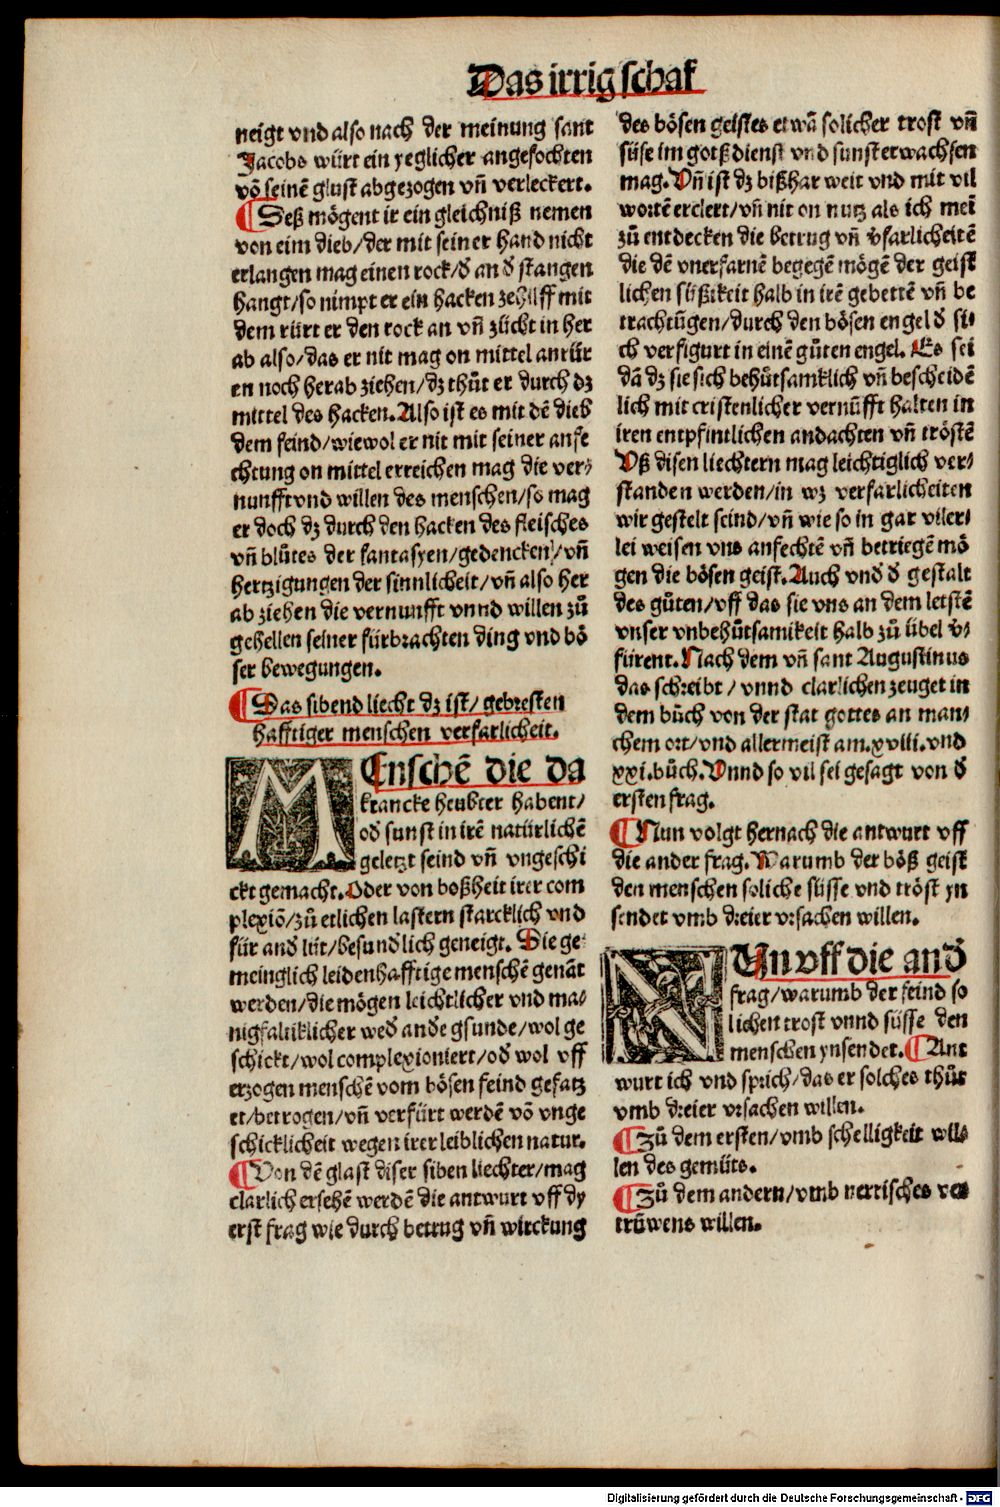 Das irrig schaf
neigt vnd also nach der meinung sant
Jacobs würt ein yeglicher angefochten
võ seinẽ glust abgezogen vñ verleckert.
¶Deß mögent ir ein gleichniß nemen
von eim dieb/der mit seiner hand nicht
erlangen mag einen rock/đ an đ stangen
hangt/so nimpt er ein hacken zehilff mit
dem rürt er den rock an vñ zücht in her
ab also/das er nit mag on mittel anrür
en noch herab ziehen/dz thůt er durch dz
mittel des hacken. Also ist es mit dẽ dieb
dem feind/wiewol er nit mit seiner anfe
chtung on mittel erreichen mag die ver⸗
nunfft vnd willen des menschen/so mag
er doch dz durch den hacken des fleisches
vñ blůtes der fantasyen/gedencken/vñ
hertzigungen der sinnlicheit/vñ also her
ab ziehen die vernunfft vnnd willen zů
gehellen seiner fürbrachten ding vnd bö
ser bewegungen.
¶Das sibend liecht dz ist/gebresten
hafftiger menschen verfarlicheit.
MEnschẽ die da
krancke heubter habent/
ođ sunst in irẽ natürlichẽ
geletzt seind vñ vngeschi
ckt gemacht. Oder von boßheit irer com
plexiõ/zů etlichen lastern starcklich vnd
für and lüt/besundlich geneigt. Die ge⸗
meinglich leidenhafftige menschẽ genãt
werden/die mögen leichtlicher vnd ma⸗
nigfaltiklicher weđ anđe gsunde/wol ge
schickt/wol complexioniert/ođ wol vff
erzogen menschẽ vom bösen feind gefatz
et/betrogen/vñ verfürt werdẽ võ vnge
schicklicheit wegen irer leiblichen natur.
¶Von dẽ glast diser siben liechter/mag
clarlich ersehẽ werdẽ die antwurt vff dy
erst frag wie durch betrug vñ wirckung
des bösen geistes etwã solicher trost vñ
süse im gotß dienst vnd sunst erwachsen
mag. Vñ ist dz bißhar weit vnd mit vil
wortẽ erclert/vñ nit on nutz als ich mei
zů entdecken die betrug vñ v̈farlicheitẽ
die dẽ vnerfarnẽ begegẽ mögẽ der geist
lichen süßikeit halb in irẽ gebettẽ vñ be
trachtũgen/durch den bösen engel đ si⸗
ch verfigurt in einẽ gůten engel. Es sei
dã dz sie sich behůtsamklich vñ bescheidẽ
lich mit cristenlicher vernũfft halten in
iren entpfintlichen andachten vñ tröstẽ
Vß disen liechtern mag leichtiglich ver⸗
standen werden/in wz verfarlicheiten
wir gestelt seind/vñ wie so in gar viler⸗
lei weisen vns anfechtẽ vñ betriegẽ mö
gen die bösen geist. Auch vnđ đ gestalt
des gůten/vff das sie vns an dem letstẽ
vnser vnbehůtsamikeit halb zů übel v̈⸗
fürent. Nach dem vñ sant Augustinus
das schreibt/vnnd clarlichen zeuget in
dem bůch von der stat gottes an man⸗
chem ort/vnd allermeist am.xviii.vnd
xxi.bůch. Vnnd so vil sei gesagt von đ
ersten frag.
¶Nun volgt hernach die antwurt vff
die ander frag. Warumb der böß geist
den menschen soliche süsse vnd tröst yn
sendet vmb dreier vrsachen willen.
NUn vff die anđ
frag/warumb der feind so
lichen trost vnnd süsse den
menschen ynsendet. ¶Ant
wurt ich vnd sprich/das er solches thůt
vmb dreier vrsachen willen.
¶Zů dem ersten/vmb schelligkeit wil⸗
len des gemüts.
¶Zů dem andern/vmb nerrisches ver
trůwens willen.
Digitalisierung gefördert durch die Deutsche Forschungsgemeinschaft - DFG